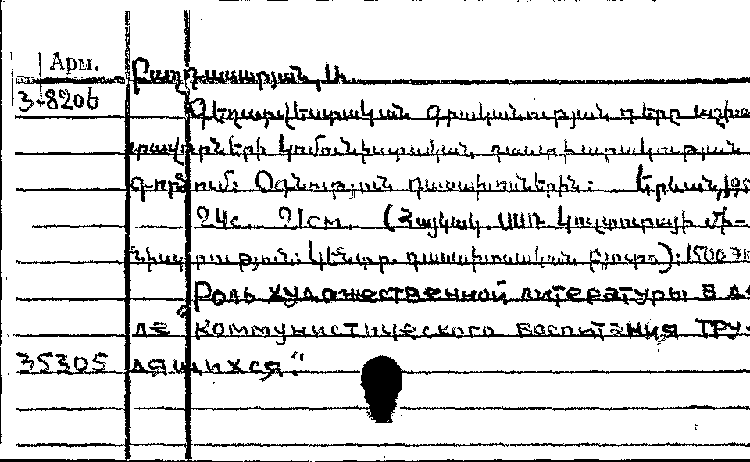 Арм.
Բաղդասարյան, Ս.
3-8206
Գեղարվեստական գրականության դերը աշխա
տավորների կոմունիստական դաստիարակության
գործում: Օգնություն դասախոսներին: Երևան, 195
24с. 21см. (Հայկակ. ՍՍՌ Կուլտուրայի մի-
նիստրություն: Կենտր. դասախոսական բյուրո): 1500 эк
„Роль художественной литературы в де
ле коммунистического воспитания тру-
35305 дящихся."